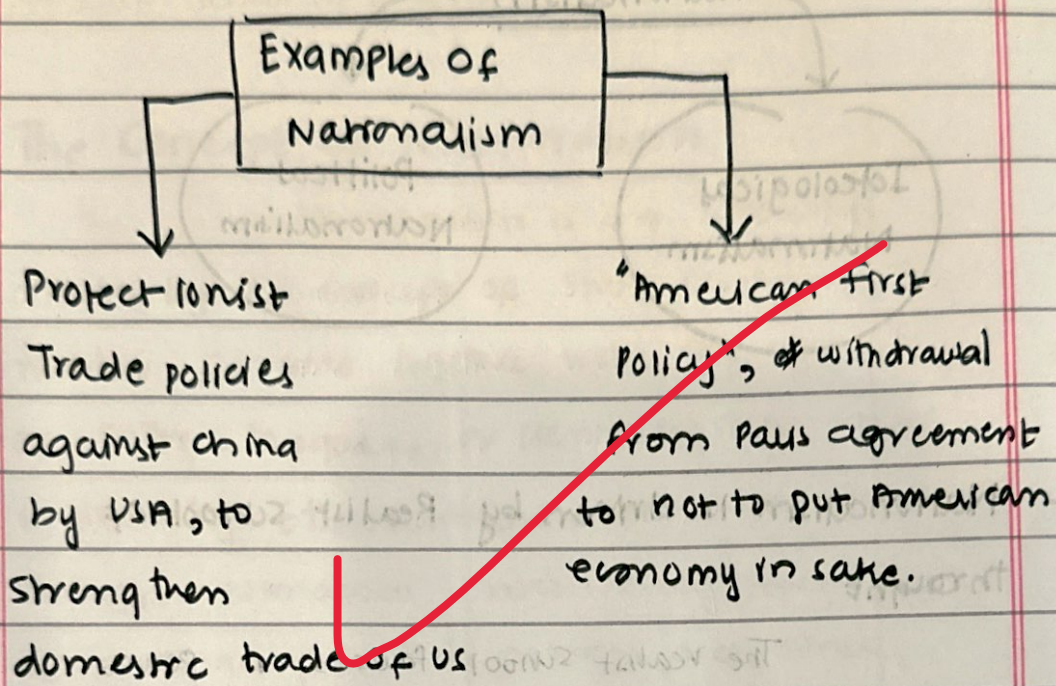 Examples of
Nationalism
Protectionist
Trade policies
against china
by USA, to
strengthen
domestic trade of US
"American first
policy", withdrawal
from Paris agreement
to not to put American
economy in sake.